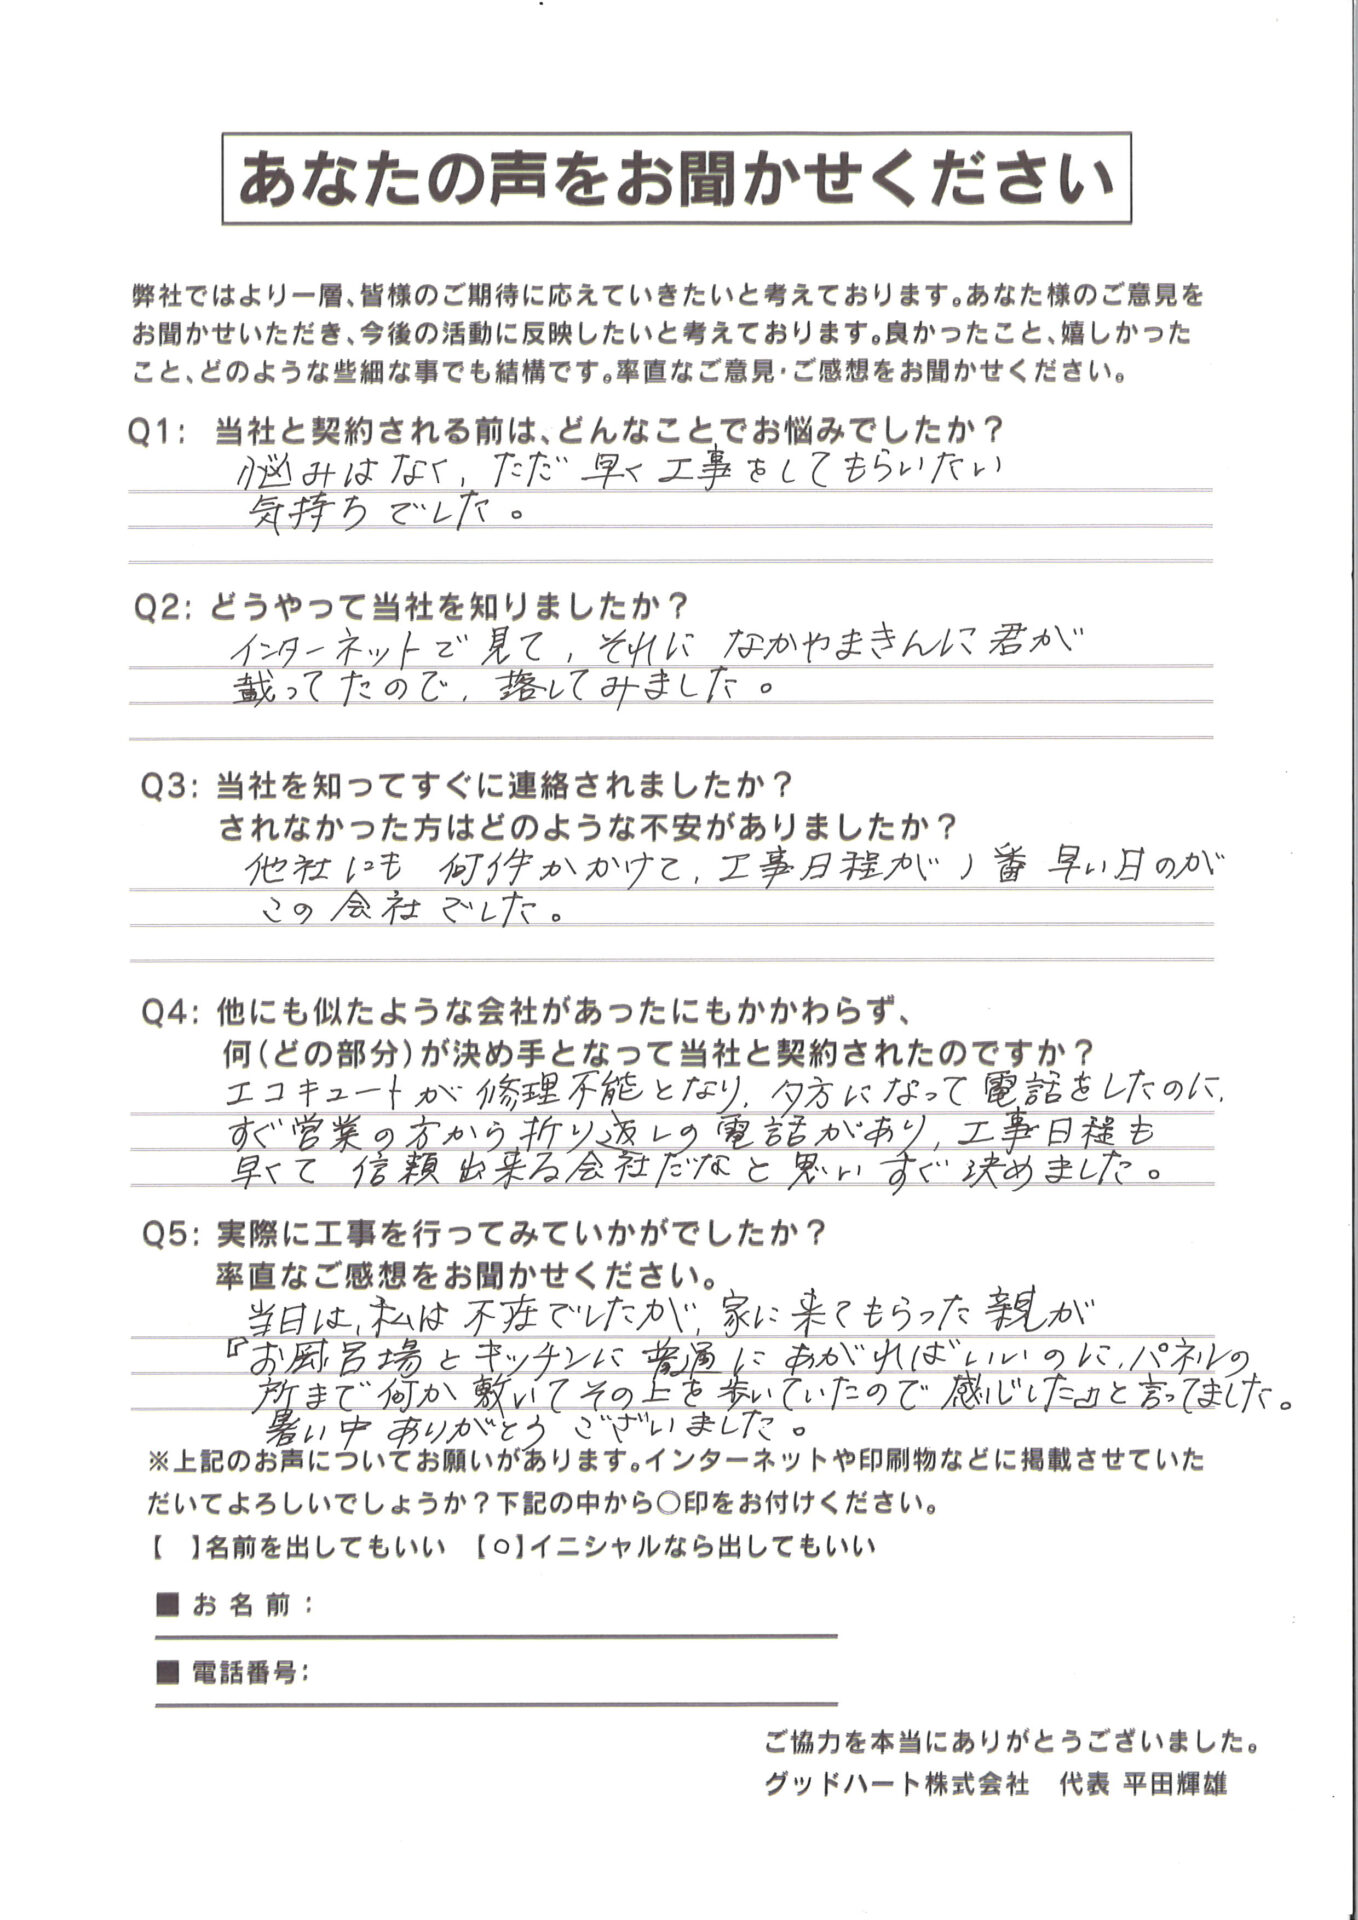 あなたの声をお聞かせください
弊社ではより一層、皆様のご期待に応えていきたいと考えております。あなた様のご意見を
お聞かせいただき、今後の活動に反映したいと考えております。良かったこと、嬉しかった
こと、どのような些細な事でも結構です。率直なご意見・ご感想をお聞かせください。
Q1: 当社と契約される前は、どんなことでお悩みでしたか？
悩みはなく、ただ早く工事をしてもらいたい
気持ちでした。
Q2: どうやって当社を知りましたか？
インターネットで見て、それになかやまきんに君が
載ってたので、してみました。
Q3: 当社を知ってすぐに連絡されましたか？
されなかった方はどのような不安がありましたか？
他社にも何件かかけて、工事日程が1番早い日のが
この会社でした。
Q4: 他にも似たような会社があったにもかかわらず、
何（どの部分）が決め手となって当社と契約されたのですか？
エコキュートが修理不能となり、夕方になって電話をしたのに、
すぐ営業の方から折り返しの電話があり、工事日程も
早くて信頼出来る会社だなと思いすぐ決めました。
Q5: 実際に工事を行ってみていかがでしたか？
率直なご感想をお聞かせください。
当日は、私は不在でしたが、家に来てもらった親が
『お風呂場とキッチンに普通にあがればいいのに、パネルの
所まで何か敷いてその上を歩いていたので感心した』と言ってました。
暑い中ありがとうございました。
※上記のお声についてお願いがあります。インターネットや印刷物などに掲載させていた
だいてよろしいでしょうか？下記の中から〇印をお付けください。
【　】名前を出してもいい　【〇】イニシャルなら出してもいい
■ お 名 前：
■ 電話番号：
ご協力を本当にありがとうございました。
グッドハート株式会社　代表 平田輝雄